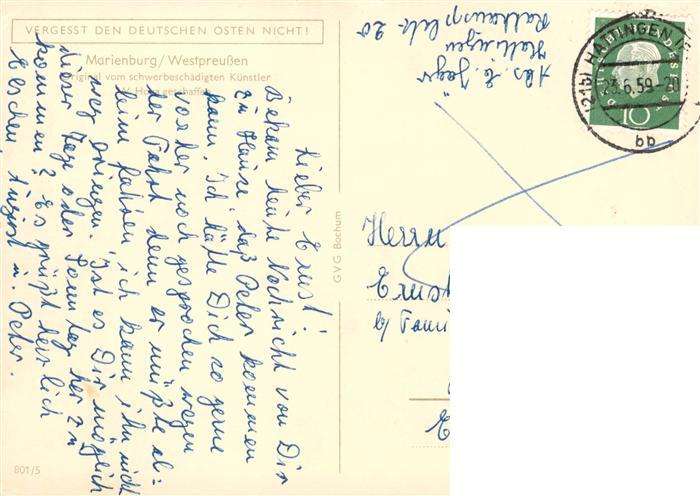 VERGESST DEN DEUTSCHEN OSTEN NICHT!
Marienburg/Westpreußen
Original vom schwerbeschädigten Künstler
geschaffen
Lieber Ernst!
Bekam heute Nachricht von Dir
zu Hause, daß Peter kommen
kann. Ich hätte Dich so gerne
vorher noch gesprochen wegen
der Fahrt denn er müßte al-
lein fahren, ich kann ihn nicht
weg bringen. Ist es Dir möglich
dieser Tage oder Sonntag her zu
kommen? Es grüßt herzlich
August u. Peter.
801/5
GVG Bochum
Abs. E. Jäger
Hattingen
Rathausplatz 20
(21b) HATTINGEN
23.6.59-20
bb
DEUTSCHE BUNDESPOST
10
Herrn
E
b/ Fami
E